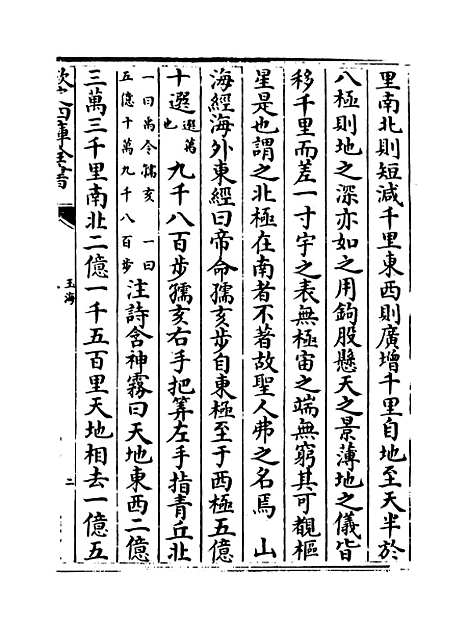 里南北則短減千里東西則廣增千里自地至天半於
八極則地之深亦如之用鉤股懸天之景薄地之儀皆
移千里而差一寸宇之表無極宙之端無窮其可覩樞
星是也謂之北極在南者不著故聖人弗之名焉 山
海經海外東經曰帝命孺亥步自東極至于西極五億
十選選萬也九千八百步孺亥右手把筭左手指青丘北
一曰尚令孺亥 一曰
五億十萬九千八百步注詩含神霧曰天地東西二億
三萬三千里南北二億一千五百里天地相去一億五
欽定四庫全書
玉海
二